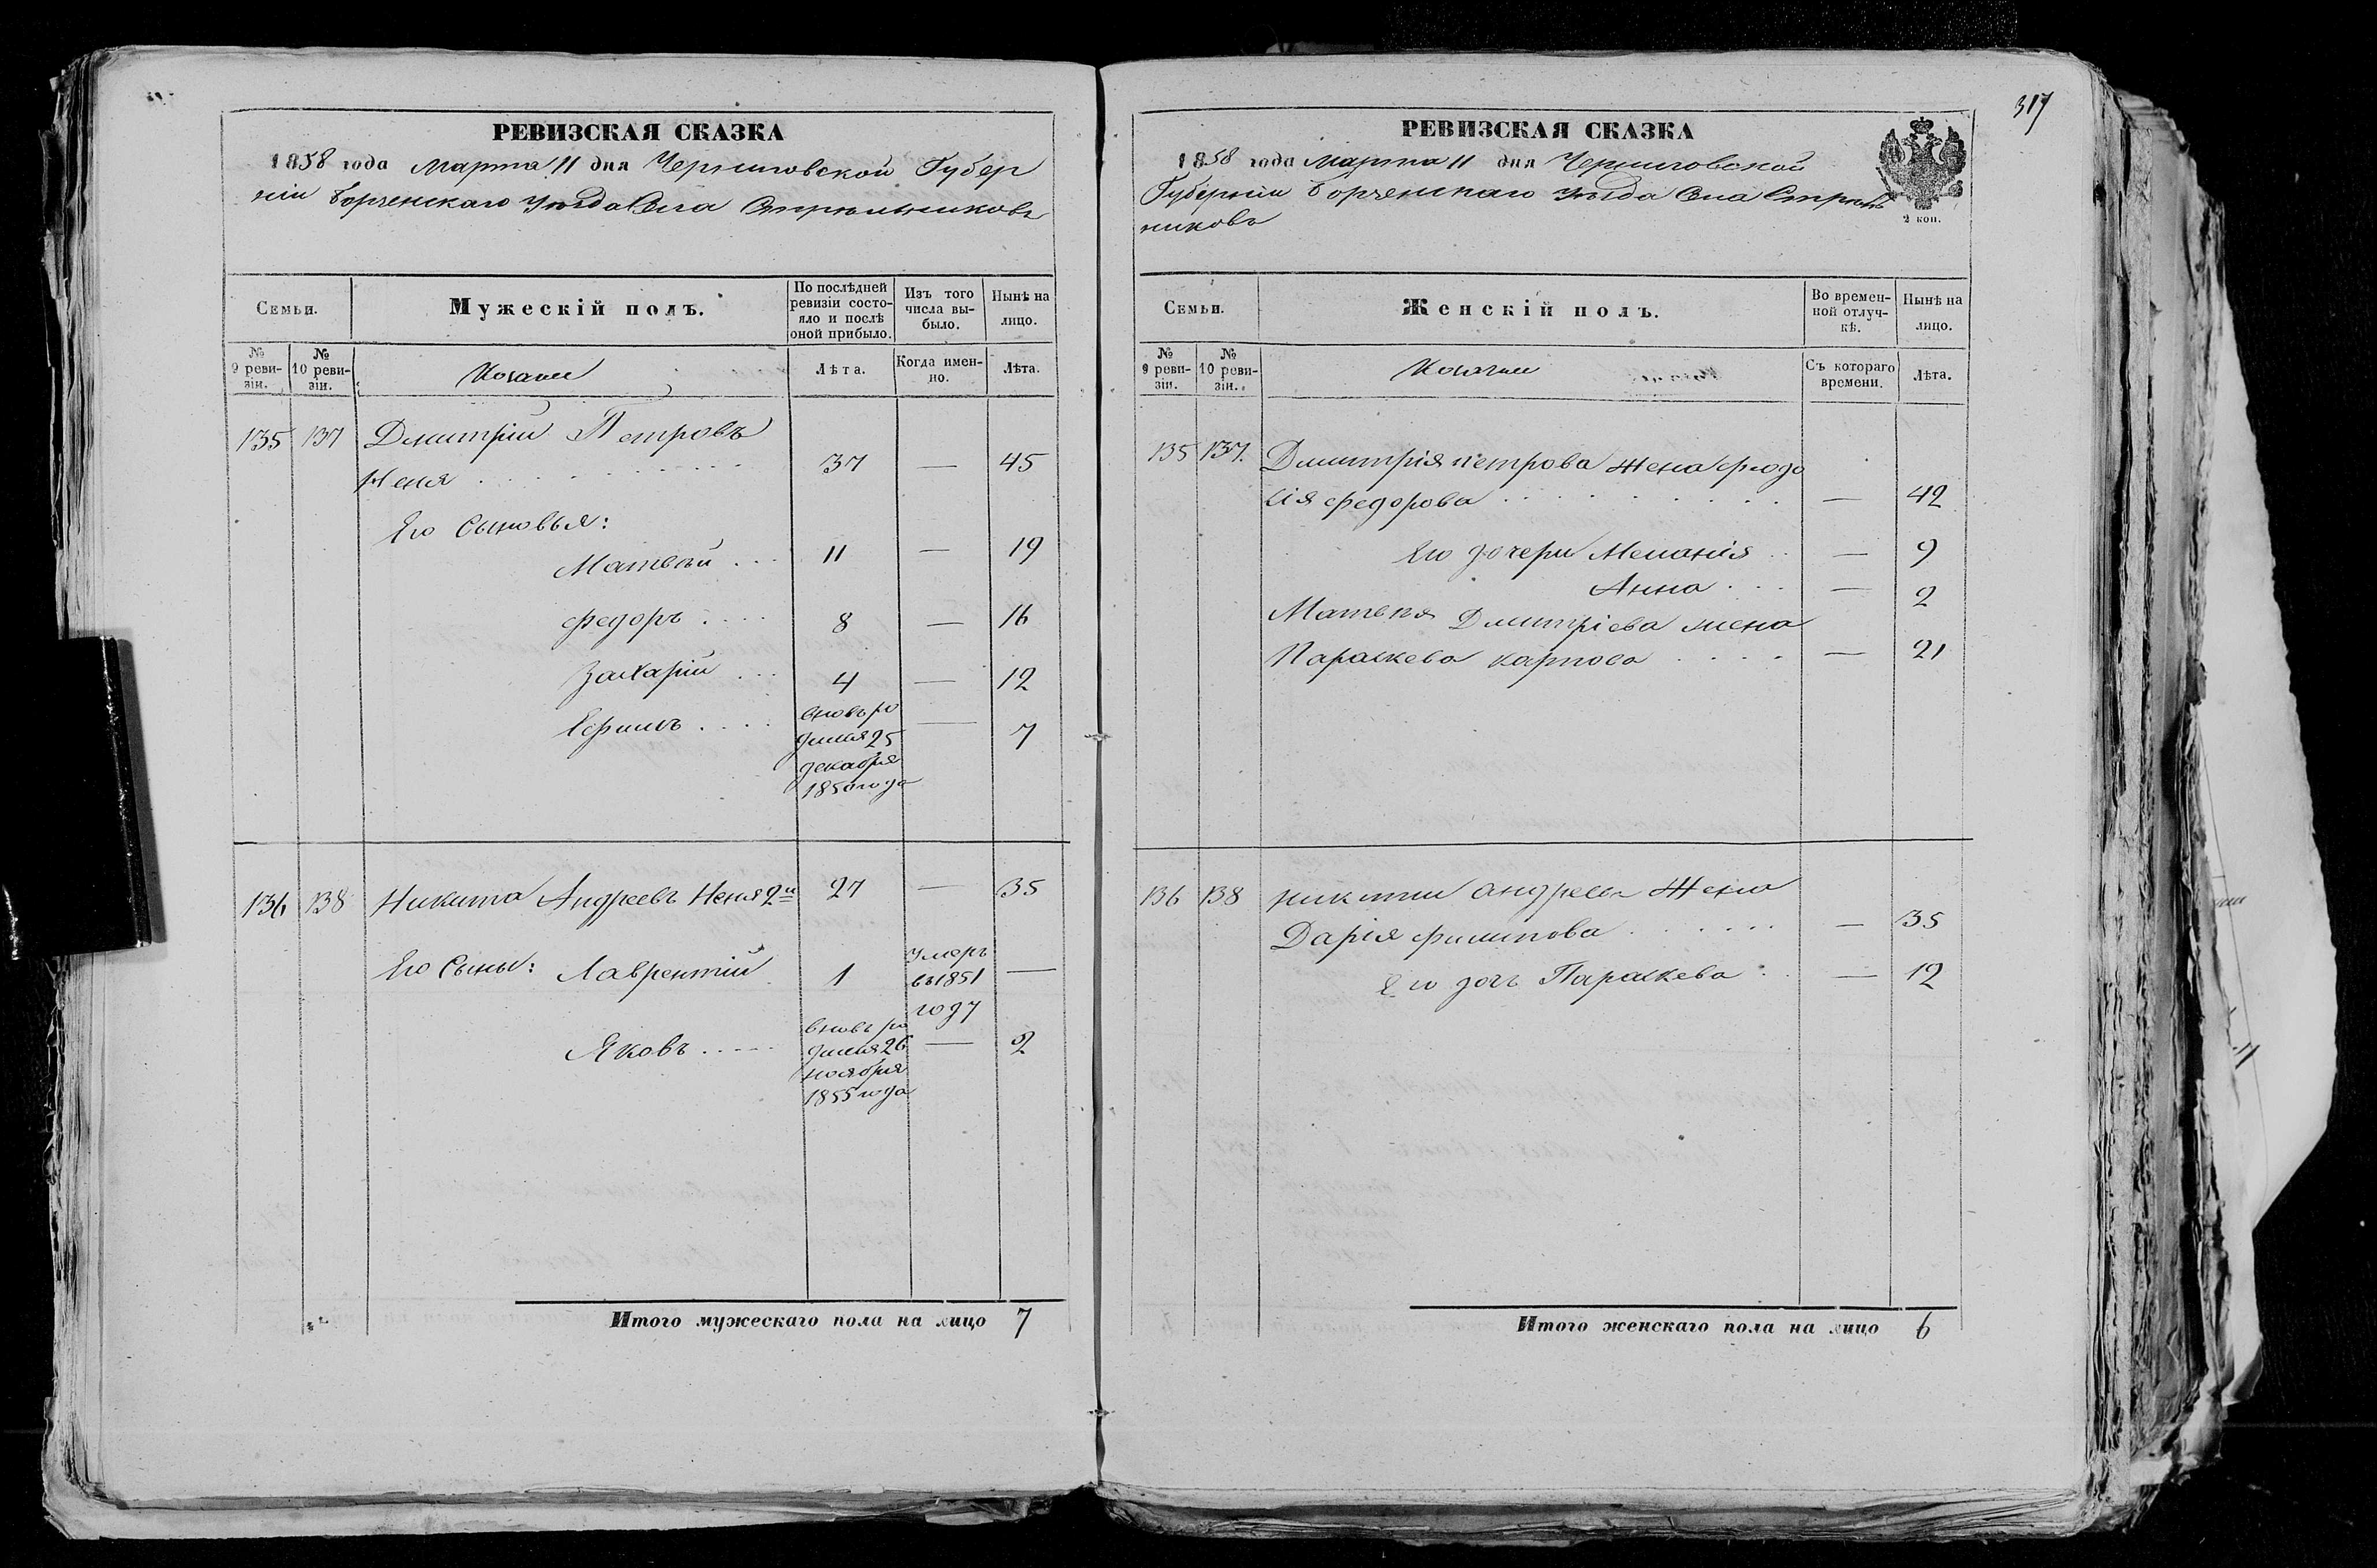 РЕВИЗСКАЯ СКАЗКА
1858 года Марта 11 дня Черниговской Губер
ніи Борзенскаго Уезда Села Стрельниковъ
Семьи.
Мужескій полъ.
По послѣдней ревизіи состо-
яло и послѣ
оной прибыло.
Изъ того
числа вы-
было.
Нынѣ на
лицо.
№
9 реви-
зіи.
№
10 реви-
зіи.
Козаки
Лѣта.
Когда имен-
но.
Лѣта.
135 137 Дмитрій Петровъ
Неня . . . 37 — 45
Его Сыновья:
Матвей . . . 11 — 19
Федоръ . . . . 8 — 16
Захарій . . . 4 — 12
Ефимъ . . . . вновь ро — 7
дился 25
декабря
1850 года
136 138 Никита Андреевъ Неня 2й 27 — 35
Его Сыны: Лаврентій 1 Умеръ —
въ 1851
году
Яковъ . . . . вновь ро — 2
дился 26
ноября
1855 года
Итого мужескаго пола на лицо 7
317
РЕВИЗСКАЯ СКАЗКА
1858 года Марта 11 дня Черниговской
Губерніи Борзенскаго Уезда Села Стрель
никовъ
2 коп.
Семьи.
Женскій полъ.
Во времен-
ной отлуч-
кѣ.
Нынѣ на
лицо.
№
9 реви-
зіи.
№
10 реви-
зіи.
Козачки
Съ котораго
времени.
Лѣта.
135 137. Дмитрія Петрова жена Фядо
сія Федорова . . . — 42
Его дочери Меланія . . — 9
Анна . . . — 2
Матвея Дмитріева жена
Параскева Карпова . . . . — 21
136 138 Никиты Андреева жена
Дарія Филипова . . . — 35
Его дочь Параскева . . — 12
Итого женскаго пола на лицо 6